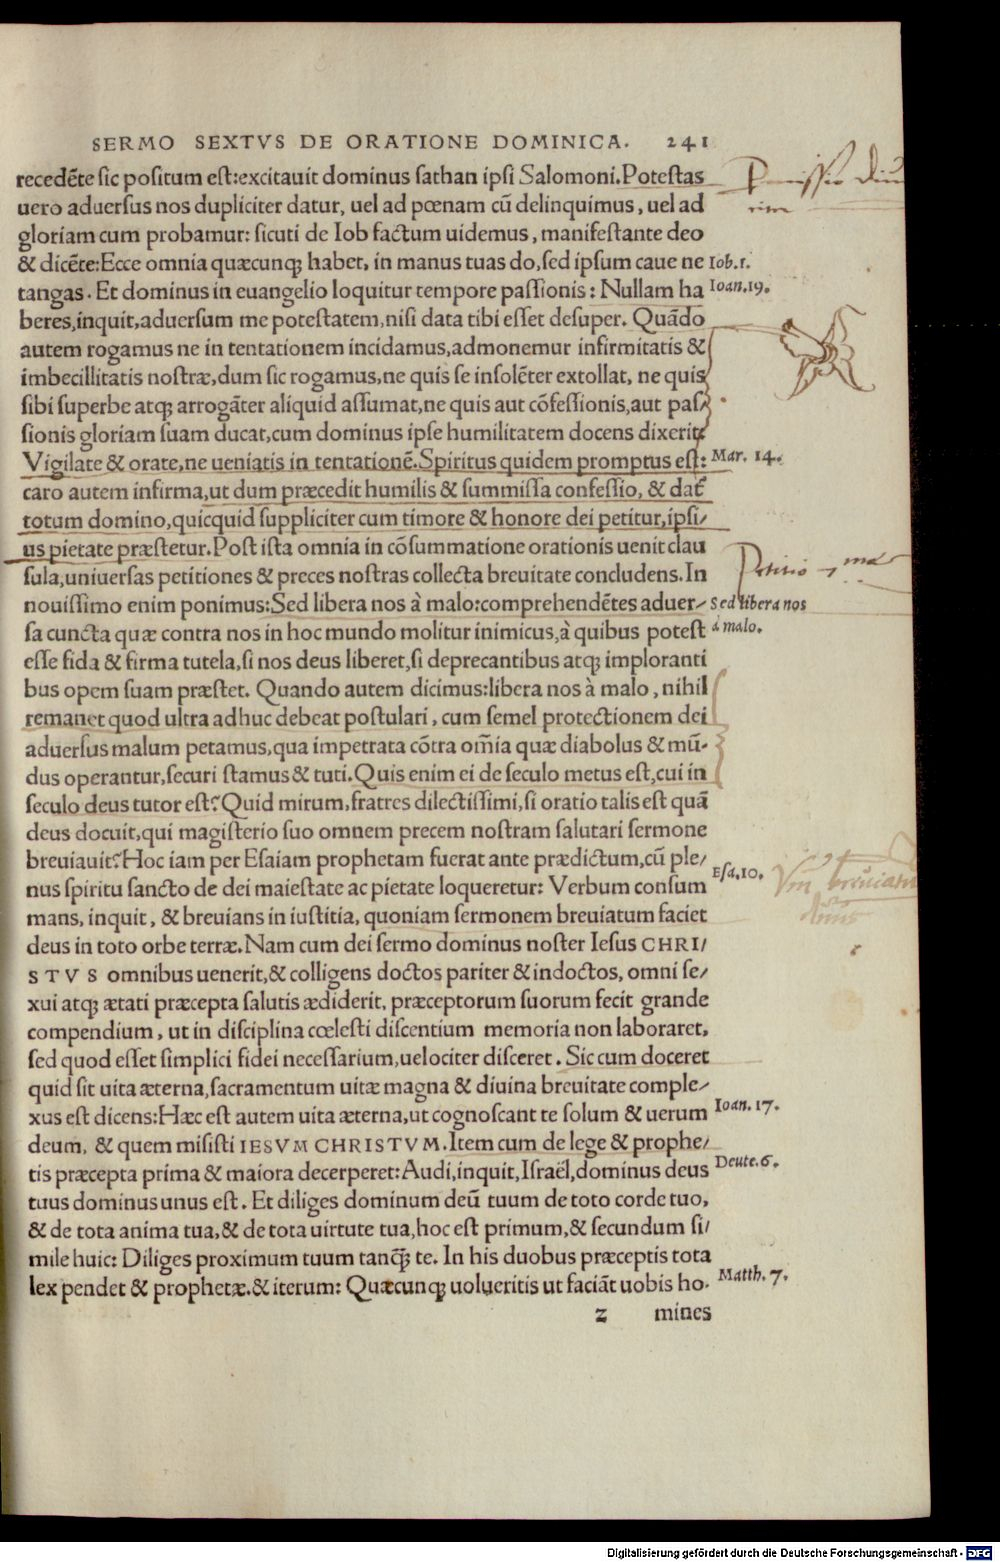 SERMO SEXTVS DE ORATIONE DOMINICA. 241
recedẽte sic positum est:excitauit dominus sathan ipsi Salomoni.Potestas
uero aduersus nos dupliciter datur, uel ad pœnam cũ delinquimus, uel ad
gloriam cum probamur: sicuti de Iob factum uidemus, manifestante deo
& dicẽte:Ecce omnia quæcunq; habet, in manus tuas do,sed ipsum caue ne
Iob.1.
tangas. Et dominus in euangelio loquitur tempore passionis: Nullam ha
Ioan.19.
beres,inquit,aduersum me potestatem,nisi data tibi esset desuper. Quãdo
autem rogamus ne in tentationem incidamus,admonemur infirmitatis &
imbecillitatis nostræ,dum sic rogamus,ne quis se insolẽter extollat, ne quis
sibi superbe atq; arrogãter aliquid assumat,ne quis aut cõfessionis,aut pas/
sionis gloriam suam ducat,cum dominus ipse humilitatem docens dixerit:
Vigilate & orate,ne ueniatis in tentationẽ.Spiritus quidem promptus est:
Mar. 14.
caro autem infirma,ut dum præcedit humilis & summissa confessio, & dat̃
totum domino,quicquid suppliciter cum timore & honore dei petitur,ipsi/
us pietate præstetur.Post ista omnia in cõsummatione orationis uenit clau
Petitio 7 ma
sula,uniuersas petitiones & preces nostras collecta breuitate concludens.In
nouissimo enim ponimus:Sed libera nos à malo:comprehendẽtes aduer/
Sed libera nos
sa cuncta quæ contra nos in hoc mundo molitur inimicus,à quibus potest
à malo.
esse fida & firma tutela,si nos deus liberet,si deprecantibus atq; imploranti
bus opem suam præstet. Quando autem dicimus:libera nos à malo, nihil
remanet quod ultra adhuc debeat postulari, cum semel protectionem dei
aduersus malum petamus,qua impetrata cõtra om̃ia quæ diabolus & mũ-
dus operantur,securi stamus & tuti.Quis enim ei de seculo metus est,cui in
seculo deus tutor est?Quid mirum,fratres dilectissimi,si oratio talis est quã
deus docuit,qui magisterio suo omnem precem nostram salutari sermone
breuiauit?Hoc iam per Esaiam prophetam fuerat ante prædictum,cũ ple/
Esa.10.
nus spiritu sancto de dei maiestate ac pietate loqueretur: Verbum consum
mans, inquit, & breuians in iustitia, quoniam sermonem breuiatum faciet
deus in toto orbe terræ.Nam cum dei sermo dominus noster Iesus CHRI/
STVS omnibus uenerit,& colligens doctos pariter & indoctos, omni se/
xui atq; ætati præcepta salutis ædiderit, præceptorum suorum fecit grande
compendium, ut in disciplina cœlesti discentium memoria non laboraret,
sed quod esset simplici fidei necessarium,uelociter disceret. Sic cum doceret
quid sit uita æterna,sacramentum uitæ magna & diuina breuitate comple/
xus est dicens:Hæc est autem uita æterna,ut cognoscant te solum & uerum
Ioan. 17.
deum, & quem misisti IESVM CHRISTVM.Item cum de lege & prophe/
tis præcepta prima & maiora decerperet:Audi,inquit,Israël,dominus deus
Deute.6.
tuus dominus unus est. Et diliges dominum deũ tuum de toto corde tuo,
& de tota anima tua,& de tota uirtute tua,hoc est primum,& secundum si/
mile huic: Diliges proximum tuum tanq̃; te. In his duobus præceptis tota
lex pendet & prophetæ.& iterum: Quæcunq; uolueritis ut faciãt uobis ho-
Matth. 7.
z mines
Digitalisierung gefördert durch die Deutsche Forschungsgemeinschaft - DFG